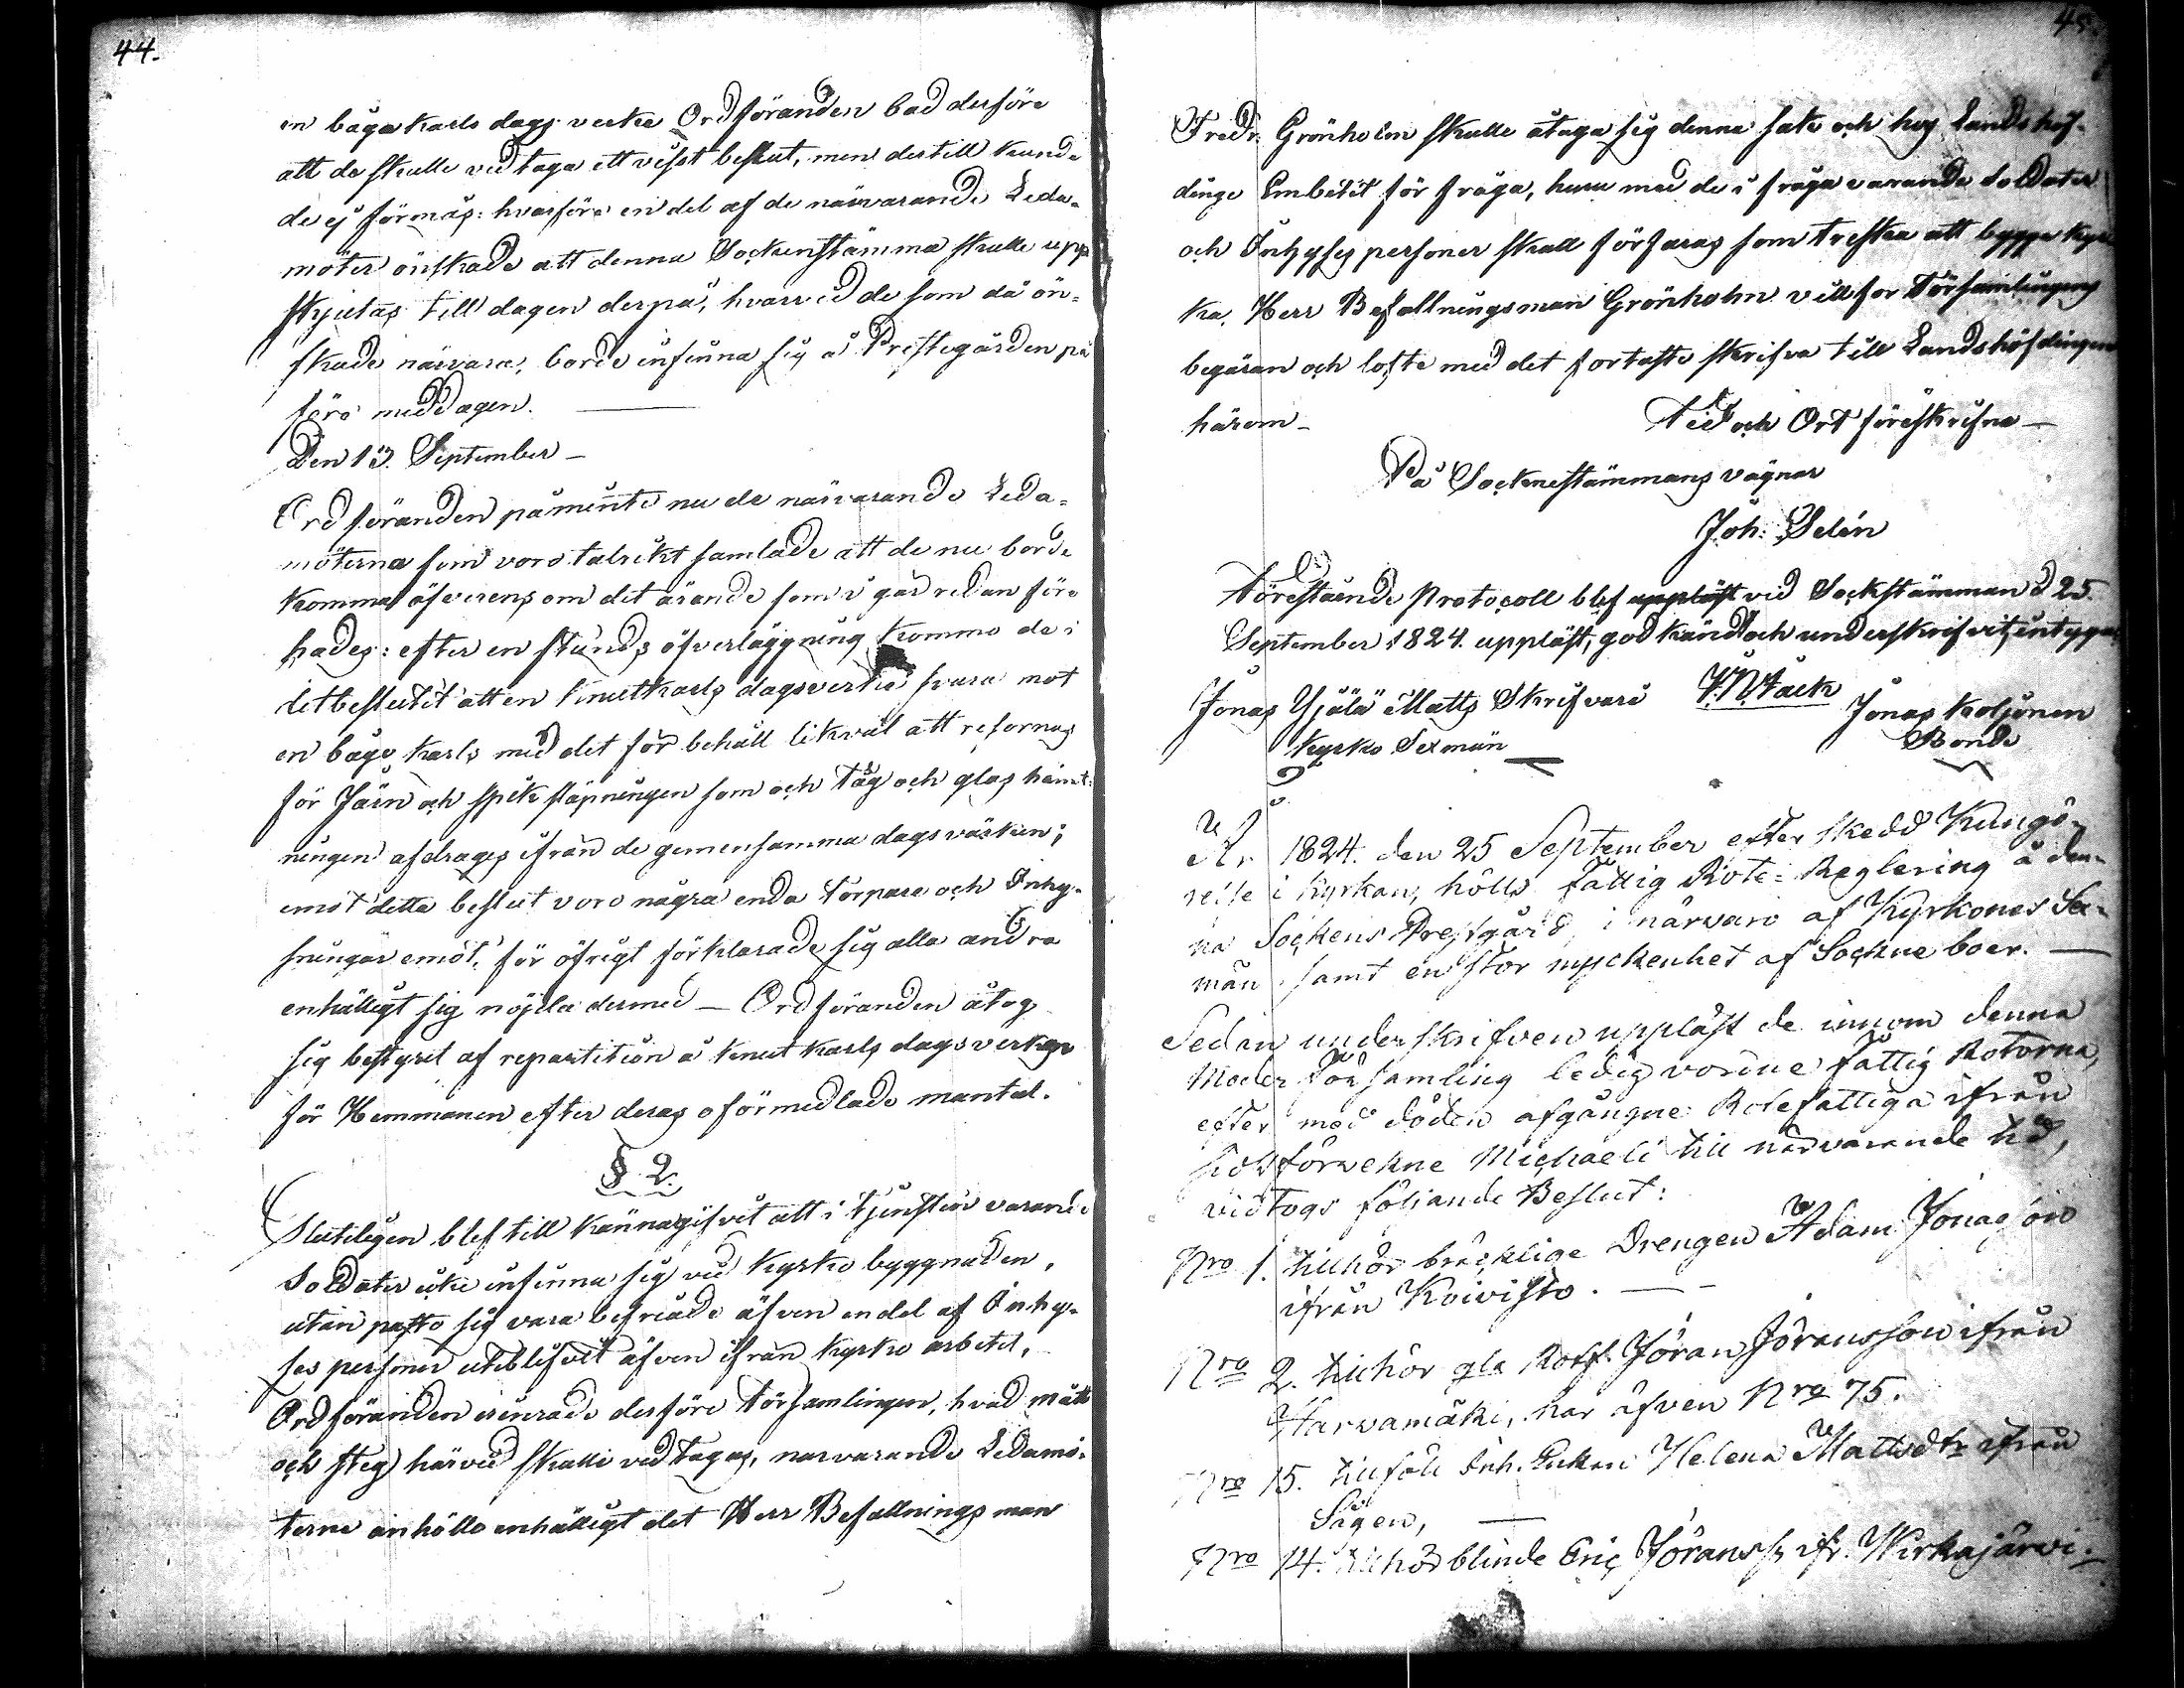 44.
en båga karls dags verke Ordföranden bad derföre
att de skulle vid taga ett visst beslut, men dertill kunde
de ej förmås: hvarföre en del af de närvarande Leda-
möter önskade att denna Sockenstämma skulle upp
skjutas till dagen derpå, hvarvid de som då ön-
skade närvara, borde infinna sig å Prestegården på
före middagen.
Den 13. September —
Ordföranden påminte nu de närvarande Leda-
möterna som voro talrikt samlade att de nu borde
komma öfverens om det ärande som i går redan före
hades: efter en stunds öfverläggning kommo de i
det beslutit att en knutkarls dagsverke svara mot
en båge karls med det för behåll likväl att resornas
för Järn och spik släpningen som och tåg och glas hämt-
ningen afdrages ifrån de gemensamma dagsvärken;
emot detta beslut voro några enda torpare och Inhy-
sningar emot, för öfrigt förklarade sig alla andra
enhälligt sig nöjda dermed — Ordföranden åtog
sig bestyret af repartition å knut karls dagsverken
för Hemmanen efter deras oförmedlade mantal.
§ 2.
Slutligen blef till kännagifvit att i tjensten varande
Soldater icke infinna sig vid kyrko byggnaden,
utan påstå sig vara befriade äfven en del af Inhy-
ses personer uteblifvit äfven ifrån kyrko arbetet,
Ordföranden erinrade derföre Församlingen, hvad mått
och steg härvid skulle vidtagas, närvarande Ledamö-
terne anhöllo enhälligt det Herr Befallningsman
45.
Fredr. Grönholm skulle åtaga sig denna sak och hos Landshöf-
dinge Embetet för fråga, huru med de i fråga varande Soldater
och Inhyses personer skall förfaras som treska att bygga kyr
ka. Herr Befallningsman Grönholm villfor Församlingens
begäran och lofte med det fortaste skrifva till Landshöfdingen
härom — Tid och Ort föreskrifne —
På Sockenestämmans vägnar
Joh: Selin
Förestående Protocoll blef uppläst vid Sockstämman d 25
September 1824. uppläst, godkändt och underskrifvit, intygar
Jonas Yjälä Matts Skrifvare Jonas Koljonen
Kyrko Sexmän Bonde
År 1824. den 25 September efter skedd Kungö-
relse i Kyrkan, hölls fattig Rote-Reglering å den-
na Sockens Prestgård, i närvaro af Kyrkones Sex-
män samt en stor myckenhet af Sockne boer. —
Sedan underskrifven uppläst de innom denna
Moder Församling ledig vordne fattig Rotorna,
efter med döden afgångne Rotefattiga ifrån
sidstförvekne Michaeli till närvarande tid,
vidtogs följande Beslut:
Nro 1. tillhör bräcklige Drengen Adam Jonasson
ifrån Koivisto. —
Nro 2. tillhör gla Rotf. Jöran Jöransson ifrån
Harvamäki, har äfven Nro 75.
Nro 15. tillföll Inh. Enkan Helena Mattsdtr ifrån
Sågen, —
Nro 14. tillhör blinde Eric Jöranss. ifr. Wirkajärvi.